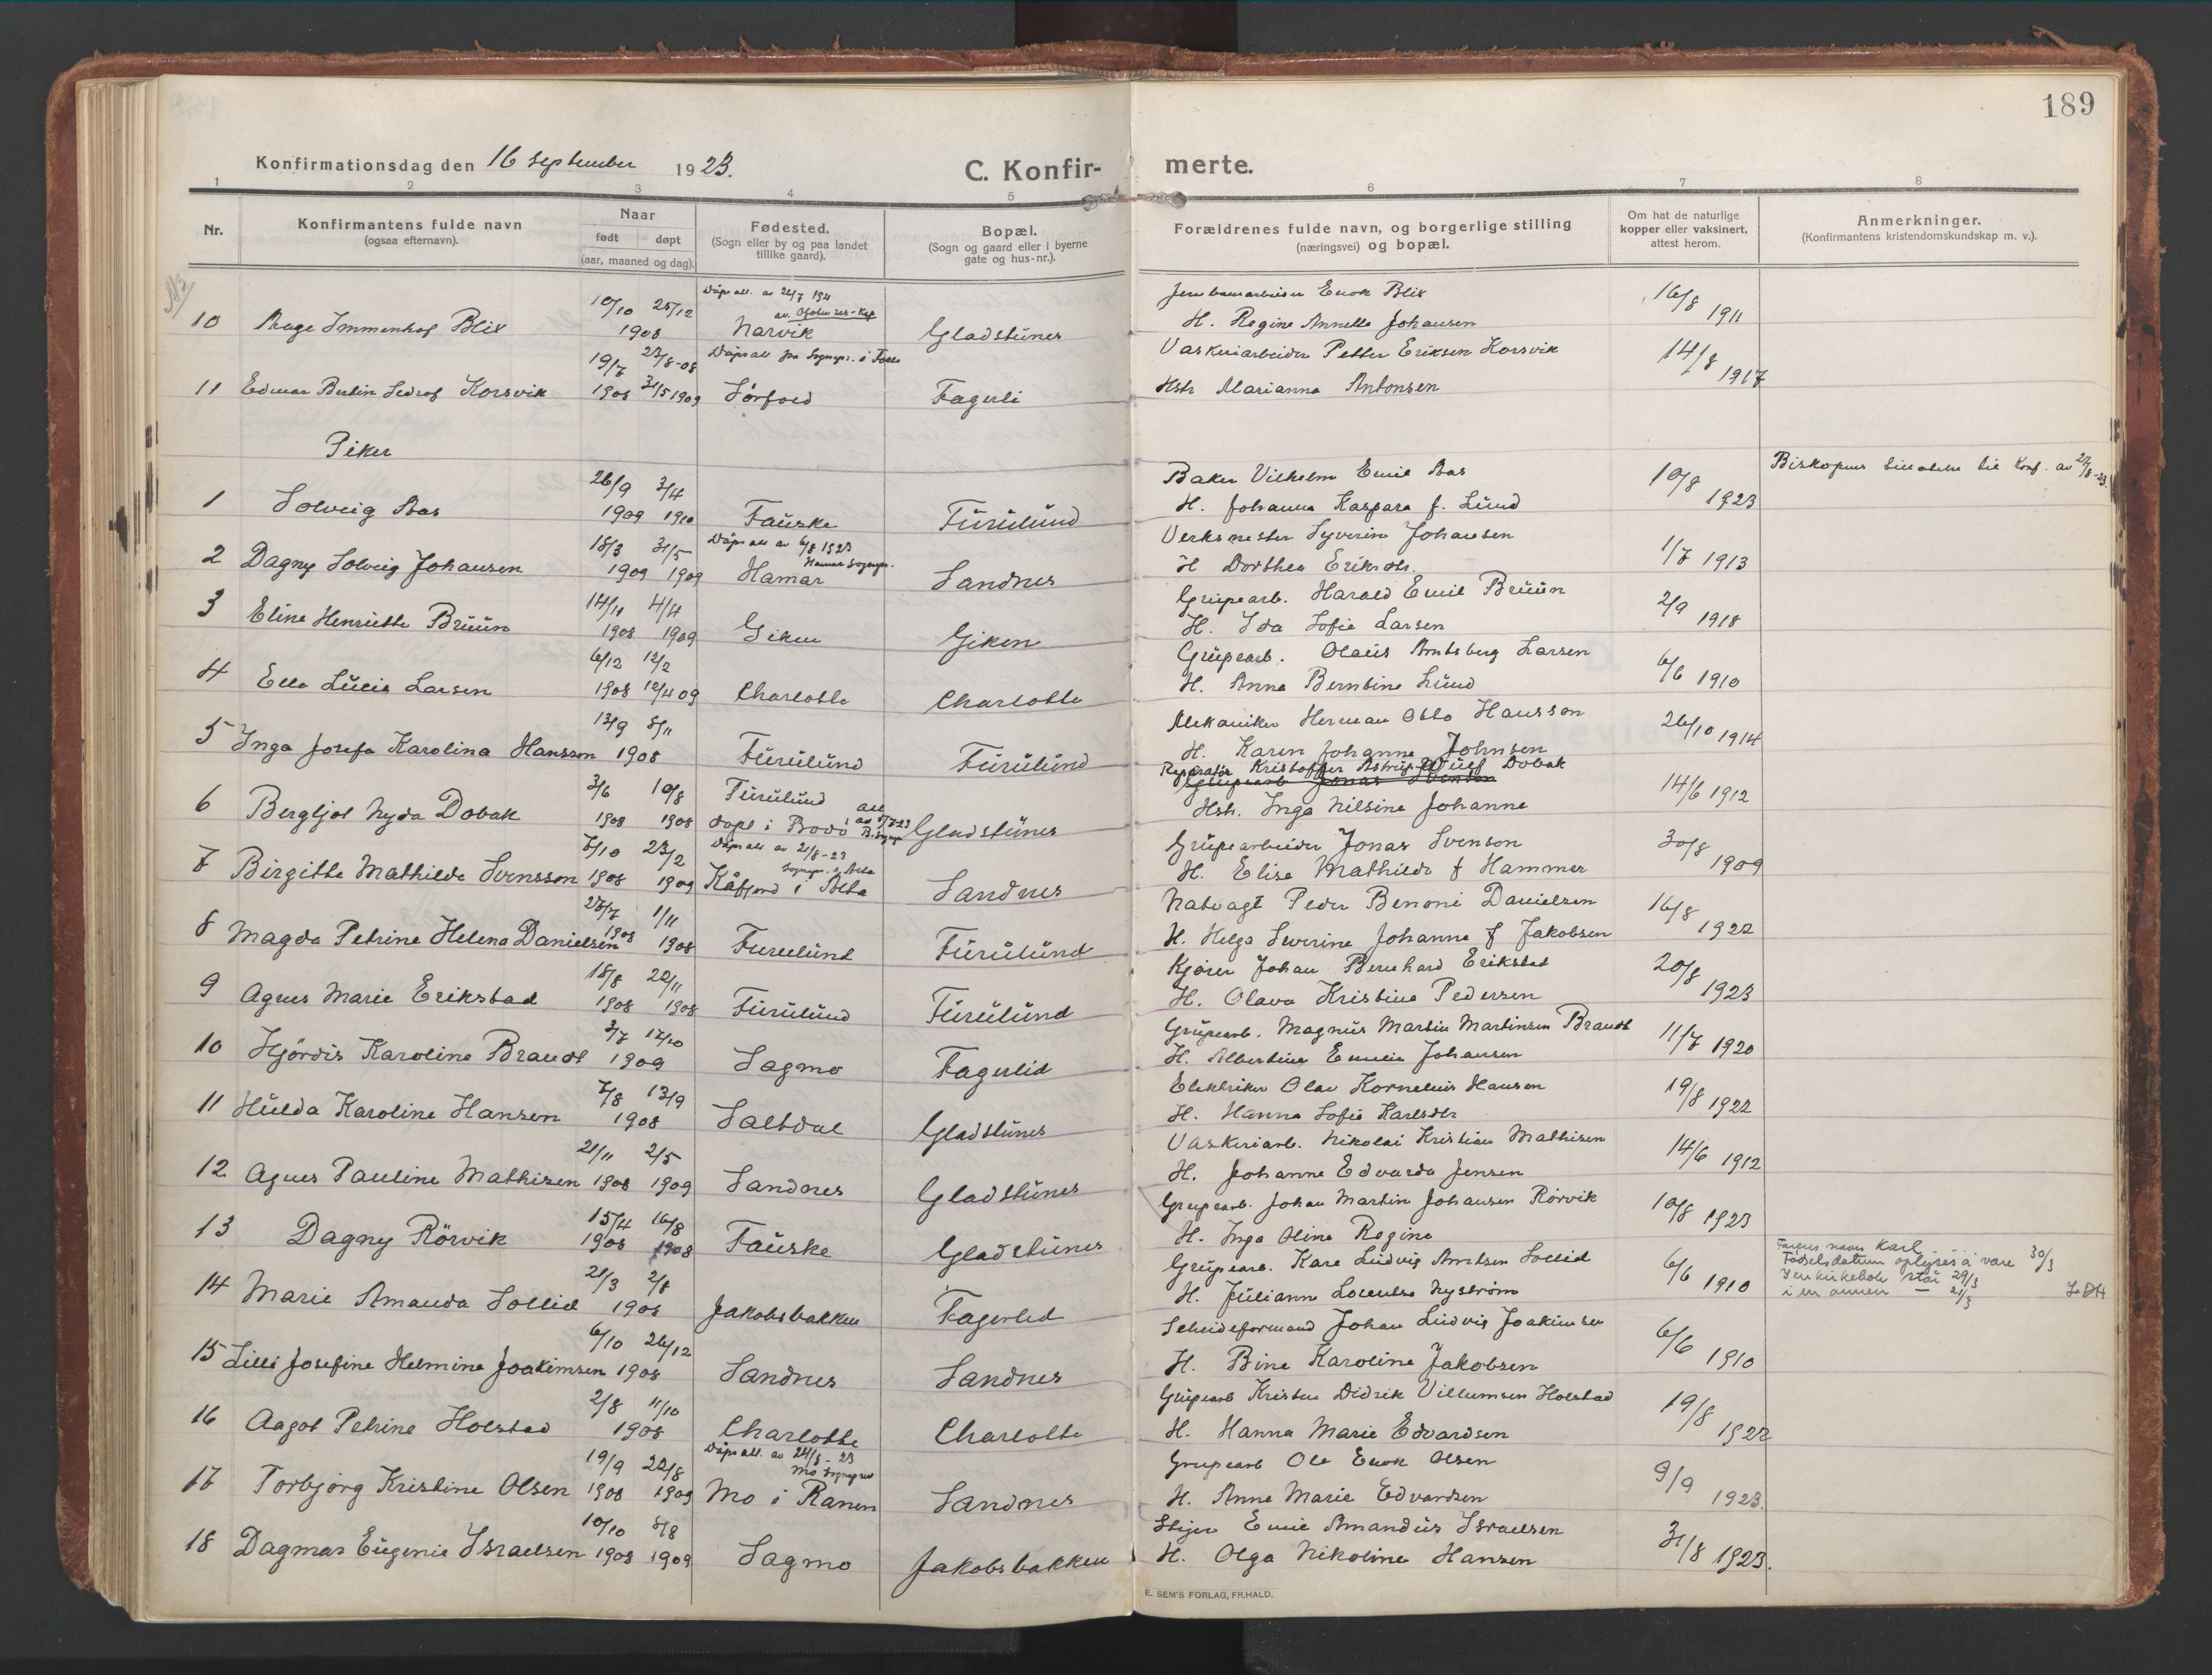 189
Konfirmationsdag den 16 september 1923.
C. Konfir- merte.
1 2 3 4 5 6 7 8
Nr.
Konfirmantens fulde navn
(ogsaa efternavn).
Naar
født døpt
(aar, maaned og dag).
Fødested.
(Sogn eller by og paa landet
tillike gaard).
Bopæl.
(Sogn og gaard eller i byerne
gate og hus-nr.).
Forældrenes fulde navn, og borgerlige stilling
(næringsvei) og bopæl.
Om hat de naturlige
kopper eller vaksinert,
attest herom.
Anmerkninger.
(Konfirmantens kristendomskundskap m. v.).
10 Aage Immenhof Blix 10/10 25/12 1908 Narvik Gladstunes
Enok Blix
H. Regine Annette Johansen 16/8 1911
11 Edmar Bertin Sedrof Korsvik 19/7 1908 23/8-08 31/5 1909 Sörfold Fagerli
Vaskeriarbeider Petter Eriksen Korsvik
Hstr Marianna Antonsen 14/8 1917
Piker
1 Solveig Aas 26/9 1909 3/4 1910 Fauske Furulund
Baker Vilhelm Emil Aas
H. Johanna Kaspara f. Lund 10/8 1923
Biskopens tillatelse til Konf. av 27/8-23.
2 Dagny Solveig Johansen 18/3 1909 31/5 1909 Dåpsatt av 6/8 1923 Hamar Sognepr. Hamar Sandnes
Verksmester Syverin Johansen
H Dorthea Eriksdtr. 1/7 1913
3 Eline Henriette Bruun 14/11 1908 4/4 1909 Giken Giken
Grupearb. Harald Emil Bruun
H. Ida Sofie Larsen 2/9 1918
4 Ella Lucie Larsen 6/12 1908 12/2 12/4 09 Charlotta Charlotta
Grupearb. Olaus Amtsberg Larsen
H. Anna Berntine Lund 6/6 1910
5 Inga Josefa Karolina Hansson 13/9 8/11 1908 Furulund Furulund
Mekaniker Herman Otto Hansson
H. Karen Johanne Johnsen 26/10 1914
6 Bergljot Nyda Dobak 3/6 1908 10/8 1908 Furulund döpt i Bodö Gladstunes
Reparatör Kristoffer Astrup Wulf Dobak
Grupearb Jonas Svenson
Hstr. Inga Nilsine Johanne 14/6 1912
7 Birgitte Mathilde Svensson 7/10 1908 23/2 1909 Dåpsatt av 21/8-23 Sognepr. i Alta Kåfjord i Alta Sandnes
Grupearbeider Jonas Svenson
H. Elise Mathilde f Hammer 30/8 1909
8 Magda Petrine Helena Danielsen 27/7 1908 1/11 1908 Furulund Furulund
Natvagt Peder Benoni Danielsen
H. Helga Severine Johanna f Jakobsen 16/8 1922
9 Agnes Marie Erikstad 18/8 1908 22/11 1908 Furulund Furulund
Kjörer Johan Bernhard Erikstad
H. Olava Kristine Pedersen 20/8 1923
10 Hjördis Karoline Brandt 3/7 17/10 1909 Sagmo Fagerlid
Grupearb. Magnus Martin Martinsen Brandt
H. Albertine Emelie Johansen 11/7 1920
11 Hulda Karoline Hansen 7/8 13/9 1908 Saltdal Gladstunes
Elektriker Olav Kornelius Hansen
H. Hanna Sofie Karlsdtr 19/8 1922
12 Agnes Pauline Mathisen 21/11 1908 2/5 1909 Sandnes Gladstunes
Vaskeriarb. Nikolai Kristian Mathisen
H. Johanne Edvarda Jensen 14/6 1912
13 Dagny Rörvik 15/4 1908 16/8 1908 Fauske Gladstunes
Grupearb. Johan Martin Johansen Rörvik
H. Inga Oline Regine 10/8 1923
14 Marie Amanda Sollid 21/3 2/8 1908 Jakobsbakken Fagerlid
Grupearb. Kare Ludvig Arntsen Sollid
H. Juliann Lorentse Nyström 6/6 1910
Farens navn Karl
Fødselsdatum oplyses å være 30/3
I en kirkebok står 29/3
i en annen — 21/3
15 Lilli Josefine Helmine Joakimsen 6/10 26/12 1908 Sandnes Sandnes
Scheideformand Johan Ludvig Joakimsen
H. Bine Karoline Jakobsen 6/6 1910
16 Aagot Petrine Holstad 2/8 11/10 1908 Charlotta Charlotta
Grupearb Kristen Didrik Villumsen Holstad
H. Hanna Marie Edvardsen 19/8 1922
17 Torbjörg Kristine Olsen 19/9 1908 22/8 1909 Mo i Ranen Sandnes
Grupearb Ole Enok Olsen
H. Anne Marie Edvardsen 9/9 1923.
18 Dagmar Eugenie Israelsen 10/10 1908 8/8 1909 Sagmo Jakobsbakken
Stiger Emil Amandus Israelsen
H. Olga Nikoline Hansen 31/8 1923.
E. SEM'S FORLAG, FR.HALD.